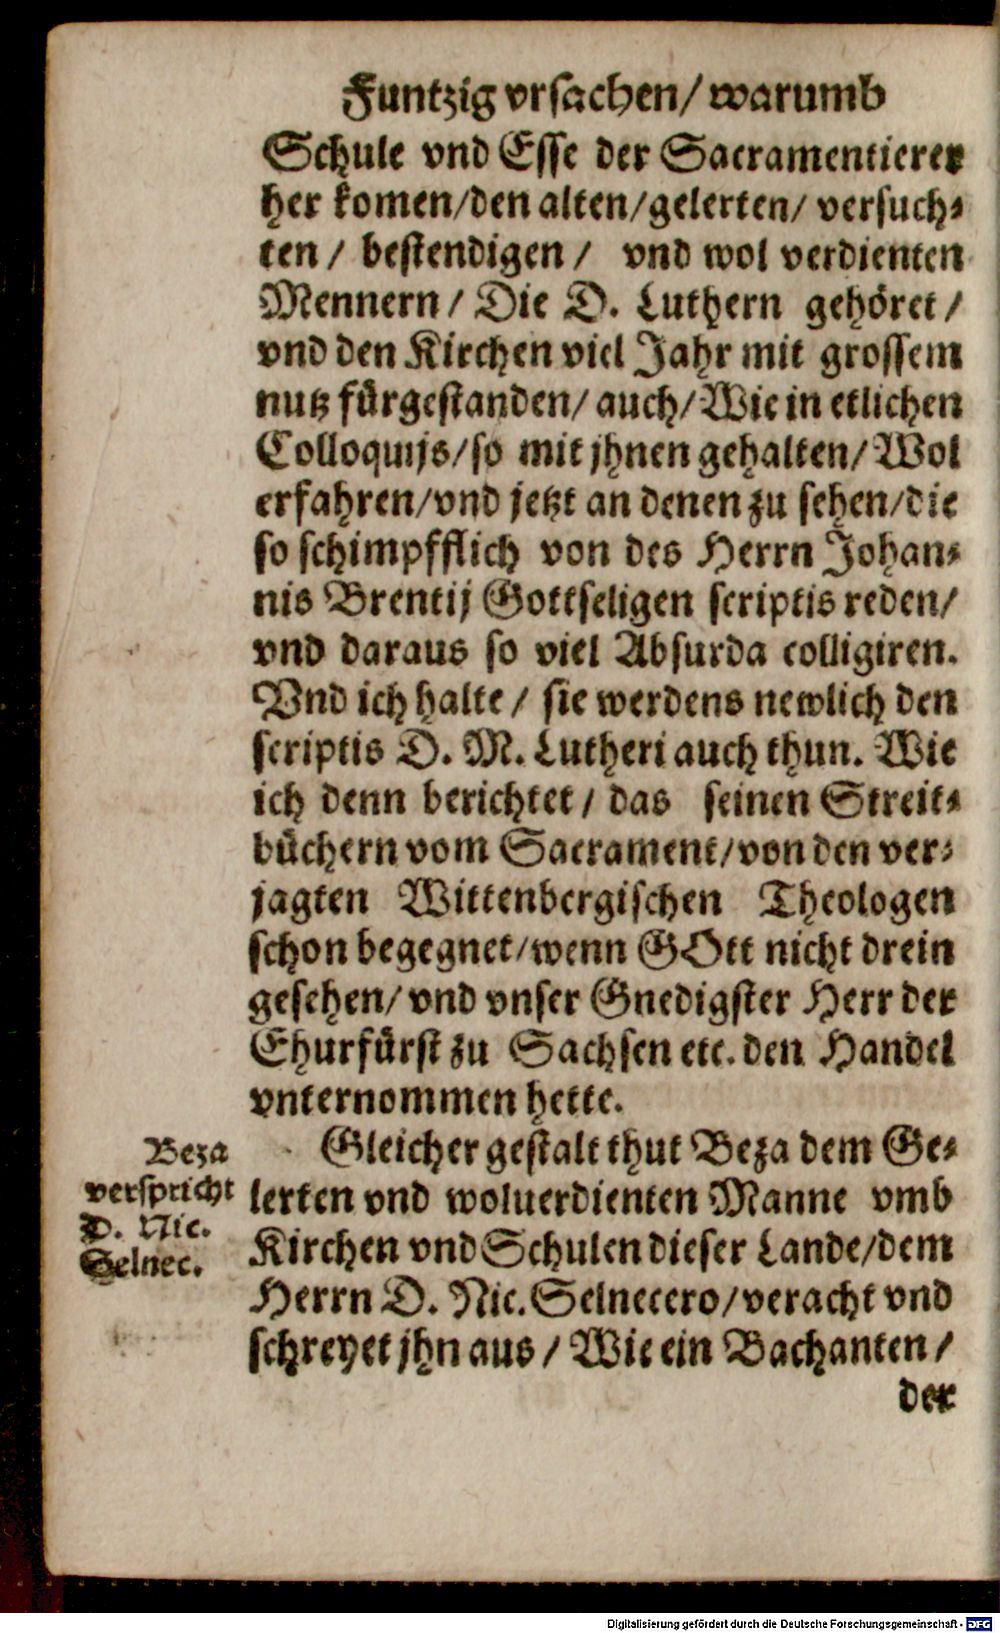 Funtzig vrsachen/ warumb
Schule vnd Esse der Sacramentierer
her komen/den alten/gelerten/ versuch⸗
ten / bestendigen / vnd wol verdienten
Mennern/ Die D. Luthern gehöret /
vnd den Kirchen viel Jahr mit grossem
nutz fürgestanden/ auch/ Wie in etlichen
Colloquijs/so mit jhnen gehalten/ Wol
erfahren/vnd jetzt an denen zu sehen/die
so schimpfflich von des Herrn Johan⸗
nis Brentij Gottseligen scriptis reden/
vnd daraus so viel Absurda colligiren.
Vnd ich halte / sie werdens newlich den
scriptis D. M. Lutheri auch thun. Wie
ich denn berichtet / das seinen Streit⸗
büchern vom Sacrament/von den ver⸗
jagten Wittenbergischen Theologen
schon begegnet/wenn GOtt nicht drein
gesehen/ vnd vnser Gnedigster Herr der
Churfürst zu Sachsen etc. den Handel
vnternommen hette.
Gleicher gestalt thut Beza dem Ge⸗
lerten vnd woluerdienten Manne vmb
Kirchen vnd Schulen dieser Lande/dem
Herrn D. Nic. Selneccero/veracht vnd
schreyet jhn aus / Wie ein Bachanten /
der
Beza
verspricht
D. Nic.
Selnec.
Digitalisierung gefördert durch die Deutsche Forschungsgemeinschaft - DFG